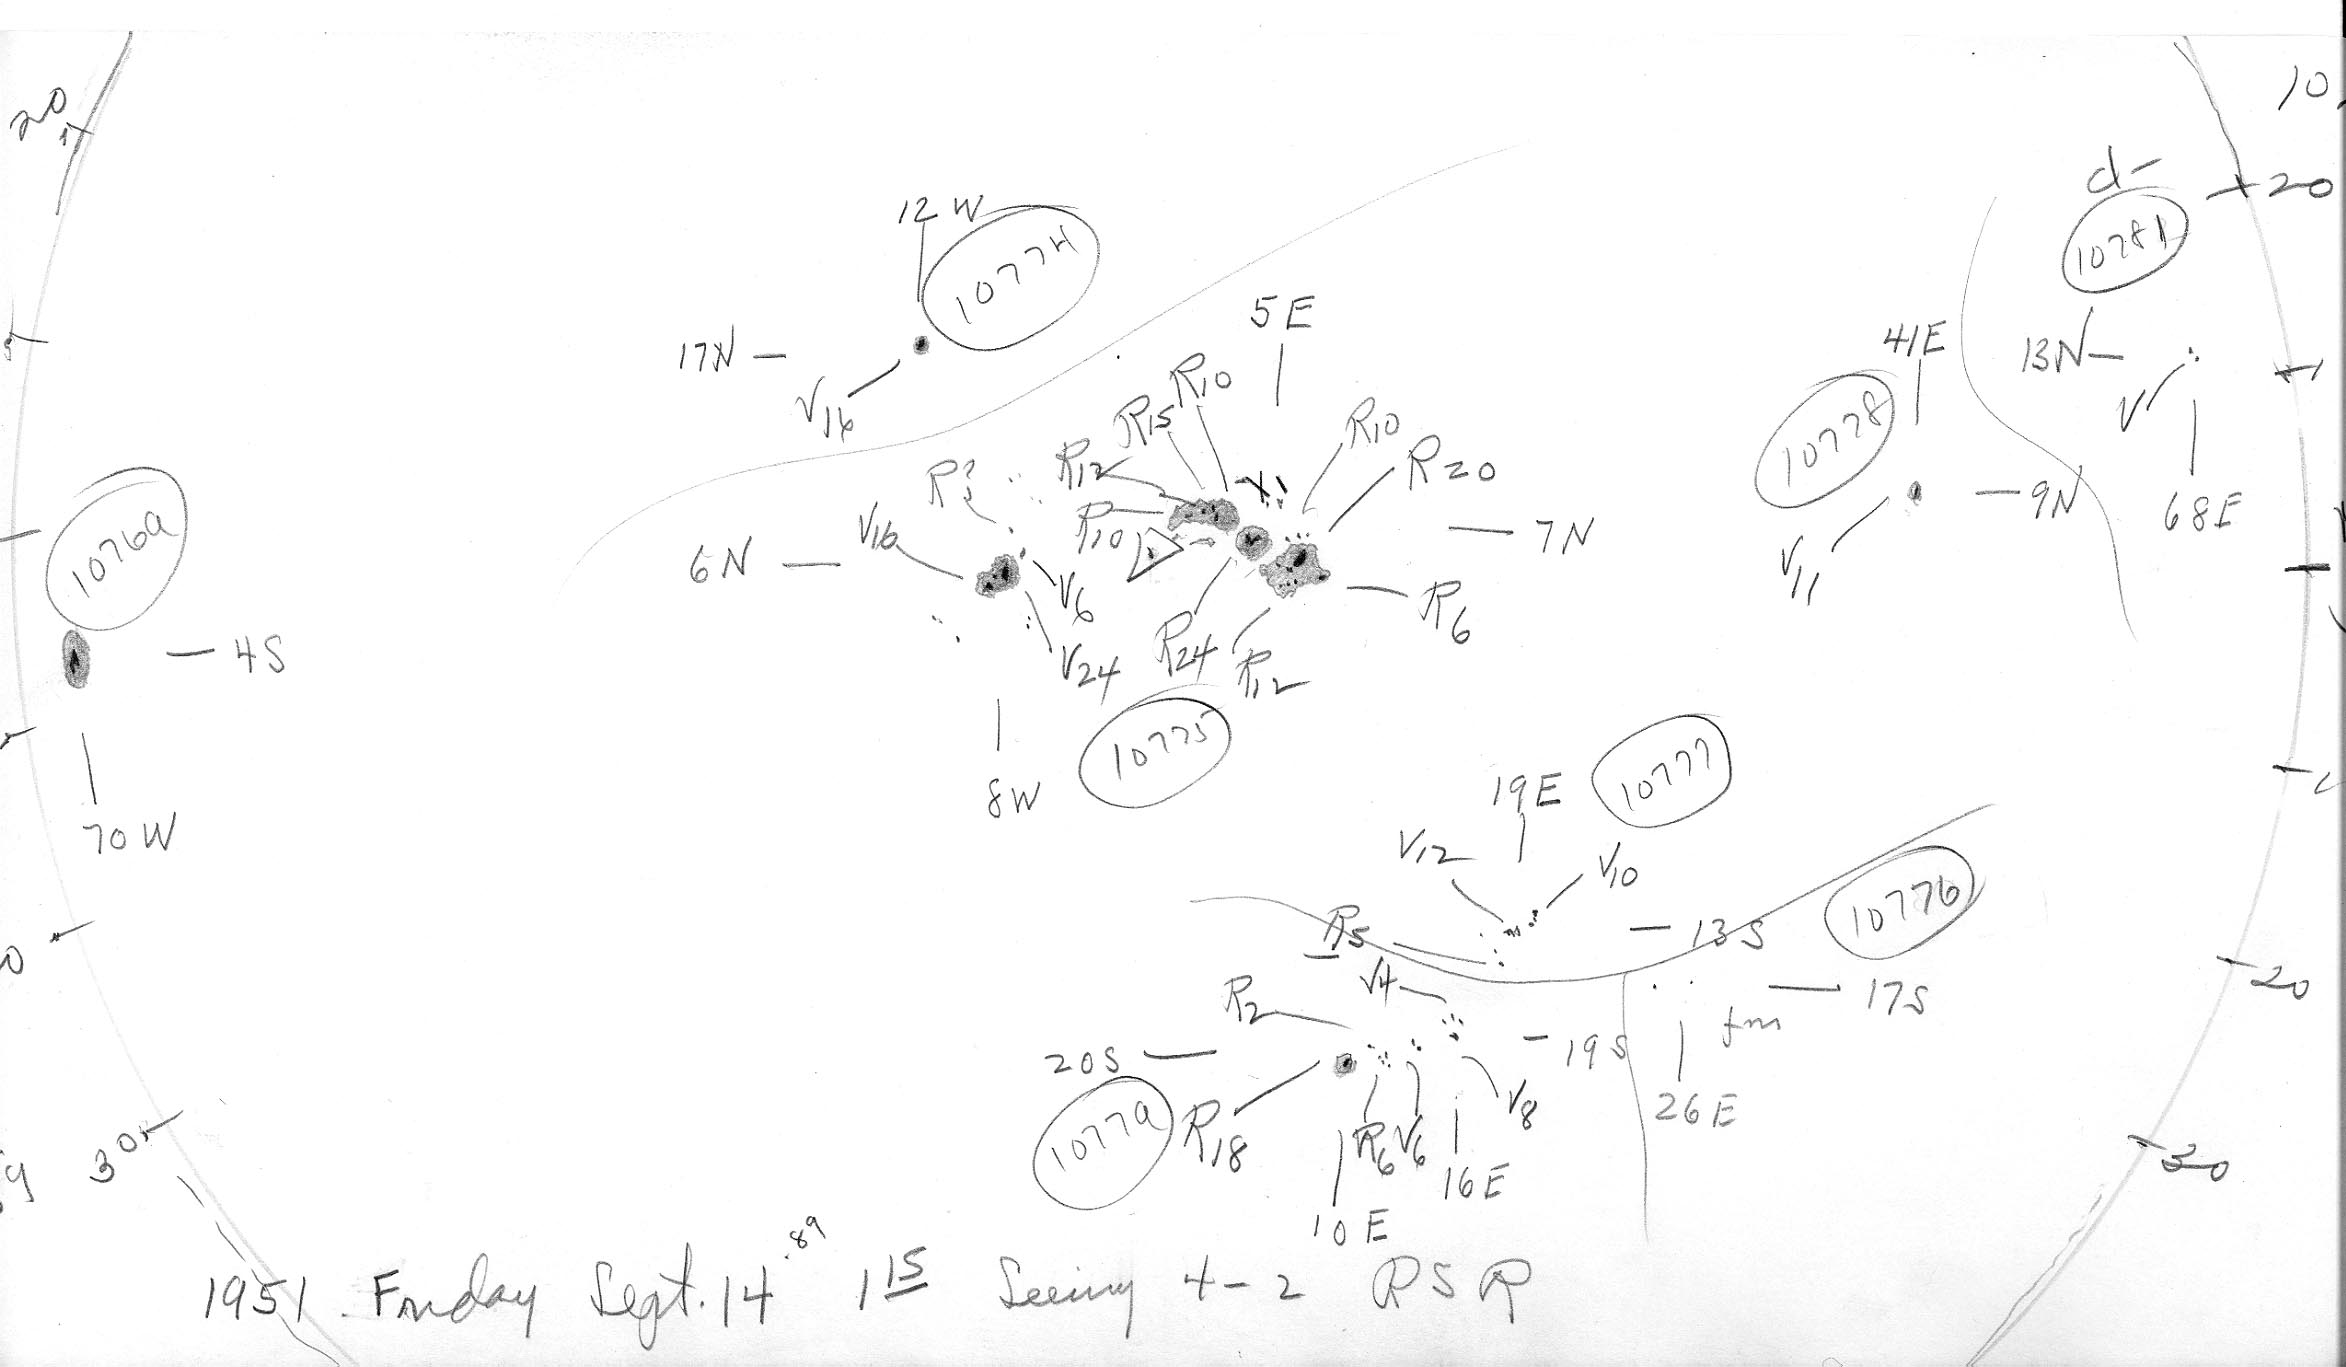 10
20
d-
20
10781
12 W
10774
5 E
41E
17N
13N
R10
V16
R15
10778
V
R10
R12
R20
R?
9N
68E
V16
R10
7N
10769
6N
V11
V6
R6
4S
V24
R24
R12
10775
8W
70W
10777
19E
V12
V10
R5
13S
10776
V4
17S
20
R2
fm
20S
19S
10779
R18
R6
V6
V8
26E
30
30
16E
10E
.89
1951 Friday Sept. 14 1 15 Seeing 4-2 RSR